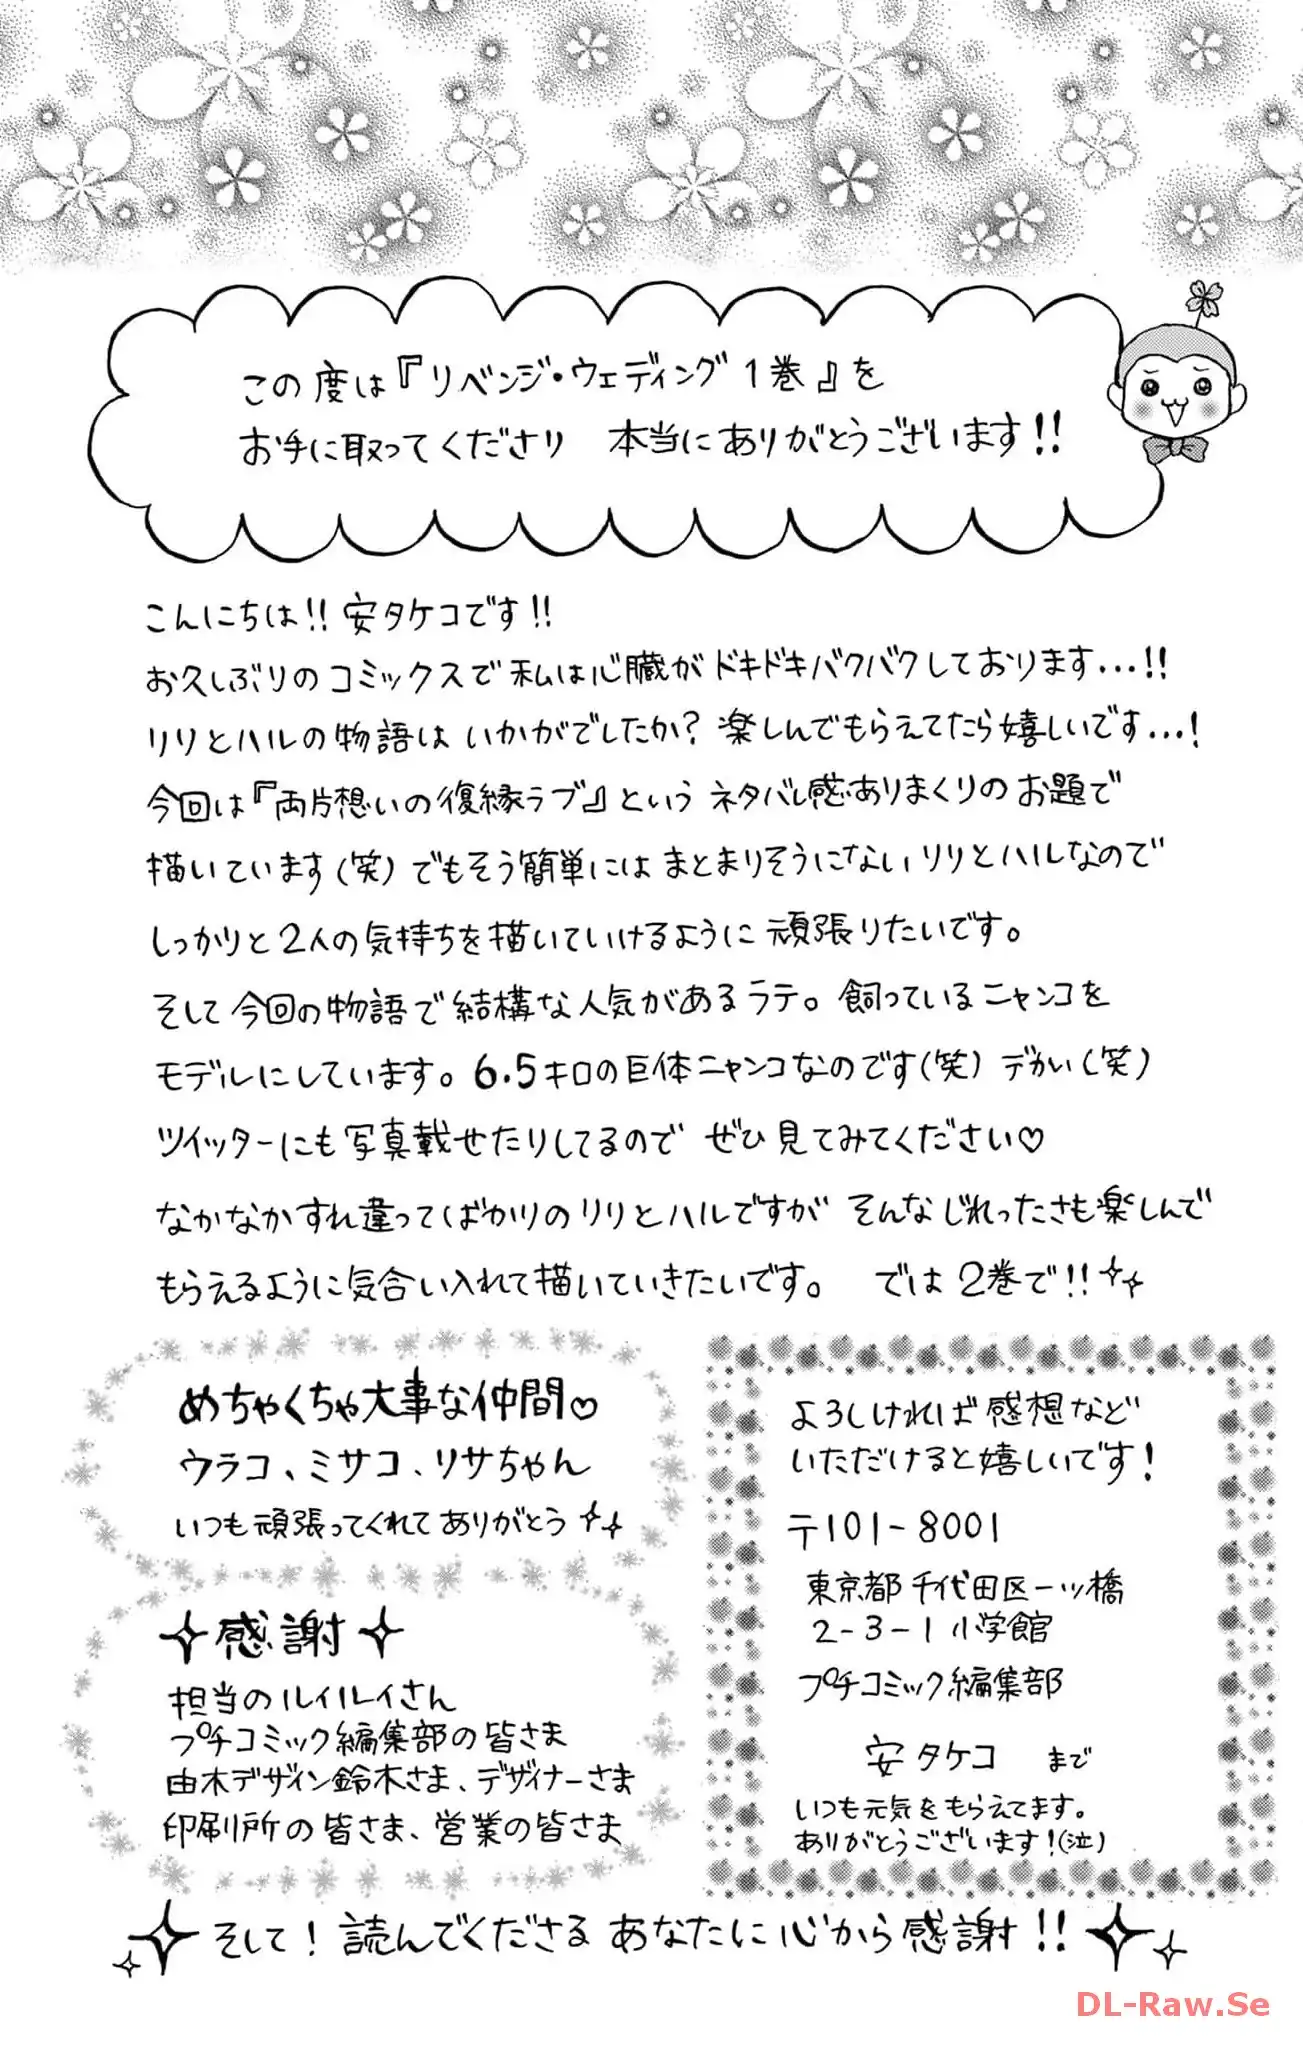 この度は『リベンジ・ウェディング1巻』を
お手に取ってくださり 本当にありがとうございます!!
こんにちは!!安タケコです!!
お久しぶりのコミックスで私は心臓がドキドキバクバクしております…!!
リリとハルの物語はいかがでしたか?楽しんでもらえてたら嬉しいです…!
今回は『両片想いの復縁ラブ』というネタバレ感ありまくりのお題で
描いています(笑)でもそう簡単にはまとまりそうにないリリとハルなので
しっかりと2人の気持ちを描いていけるように頑張りたいです。
そして今回の物語で結構な人気があるラテ。飼っているニャンコを
モデルにしています。6.5キロの巨体ニャンコなのです(笑)デかい(笑)
ツイッターにも写真載せたりしてるので ぜひ見てみてください♡
なかなかすれ違ってばかりのリリとハルですが そんなじれったさも楽しんで
もらえるように気合い入れて描いていきたいです。 では2巻で!!
めちゃくちゃ大事な仲間♡
ウラコ、ミサコ、リサちゃん
いつも頑張ってくれてありがとう
感謝
担当のルイルイさん
プチコミック編集部の皆さま
由木デザイン鈴木さま、デザイナーさま
印刷所の皆さま、営業の皆さま
よろしければ感想など
いただけると嬉しいです!
〒101-8001
東京都千代田区一ツ橋
2-3-1小学館
プチコミック編集部
安タケコ まで
いつも元気をもらえてます。
ありがとうございます!(泣)
そして!読んでくださるあなたに心から感謝!!
DL-Raw.Se